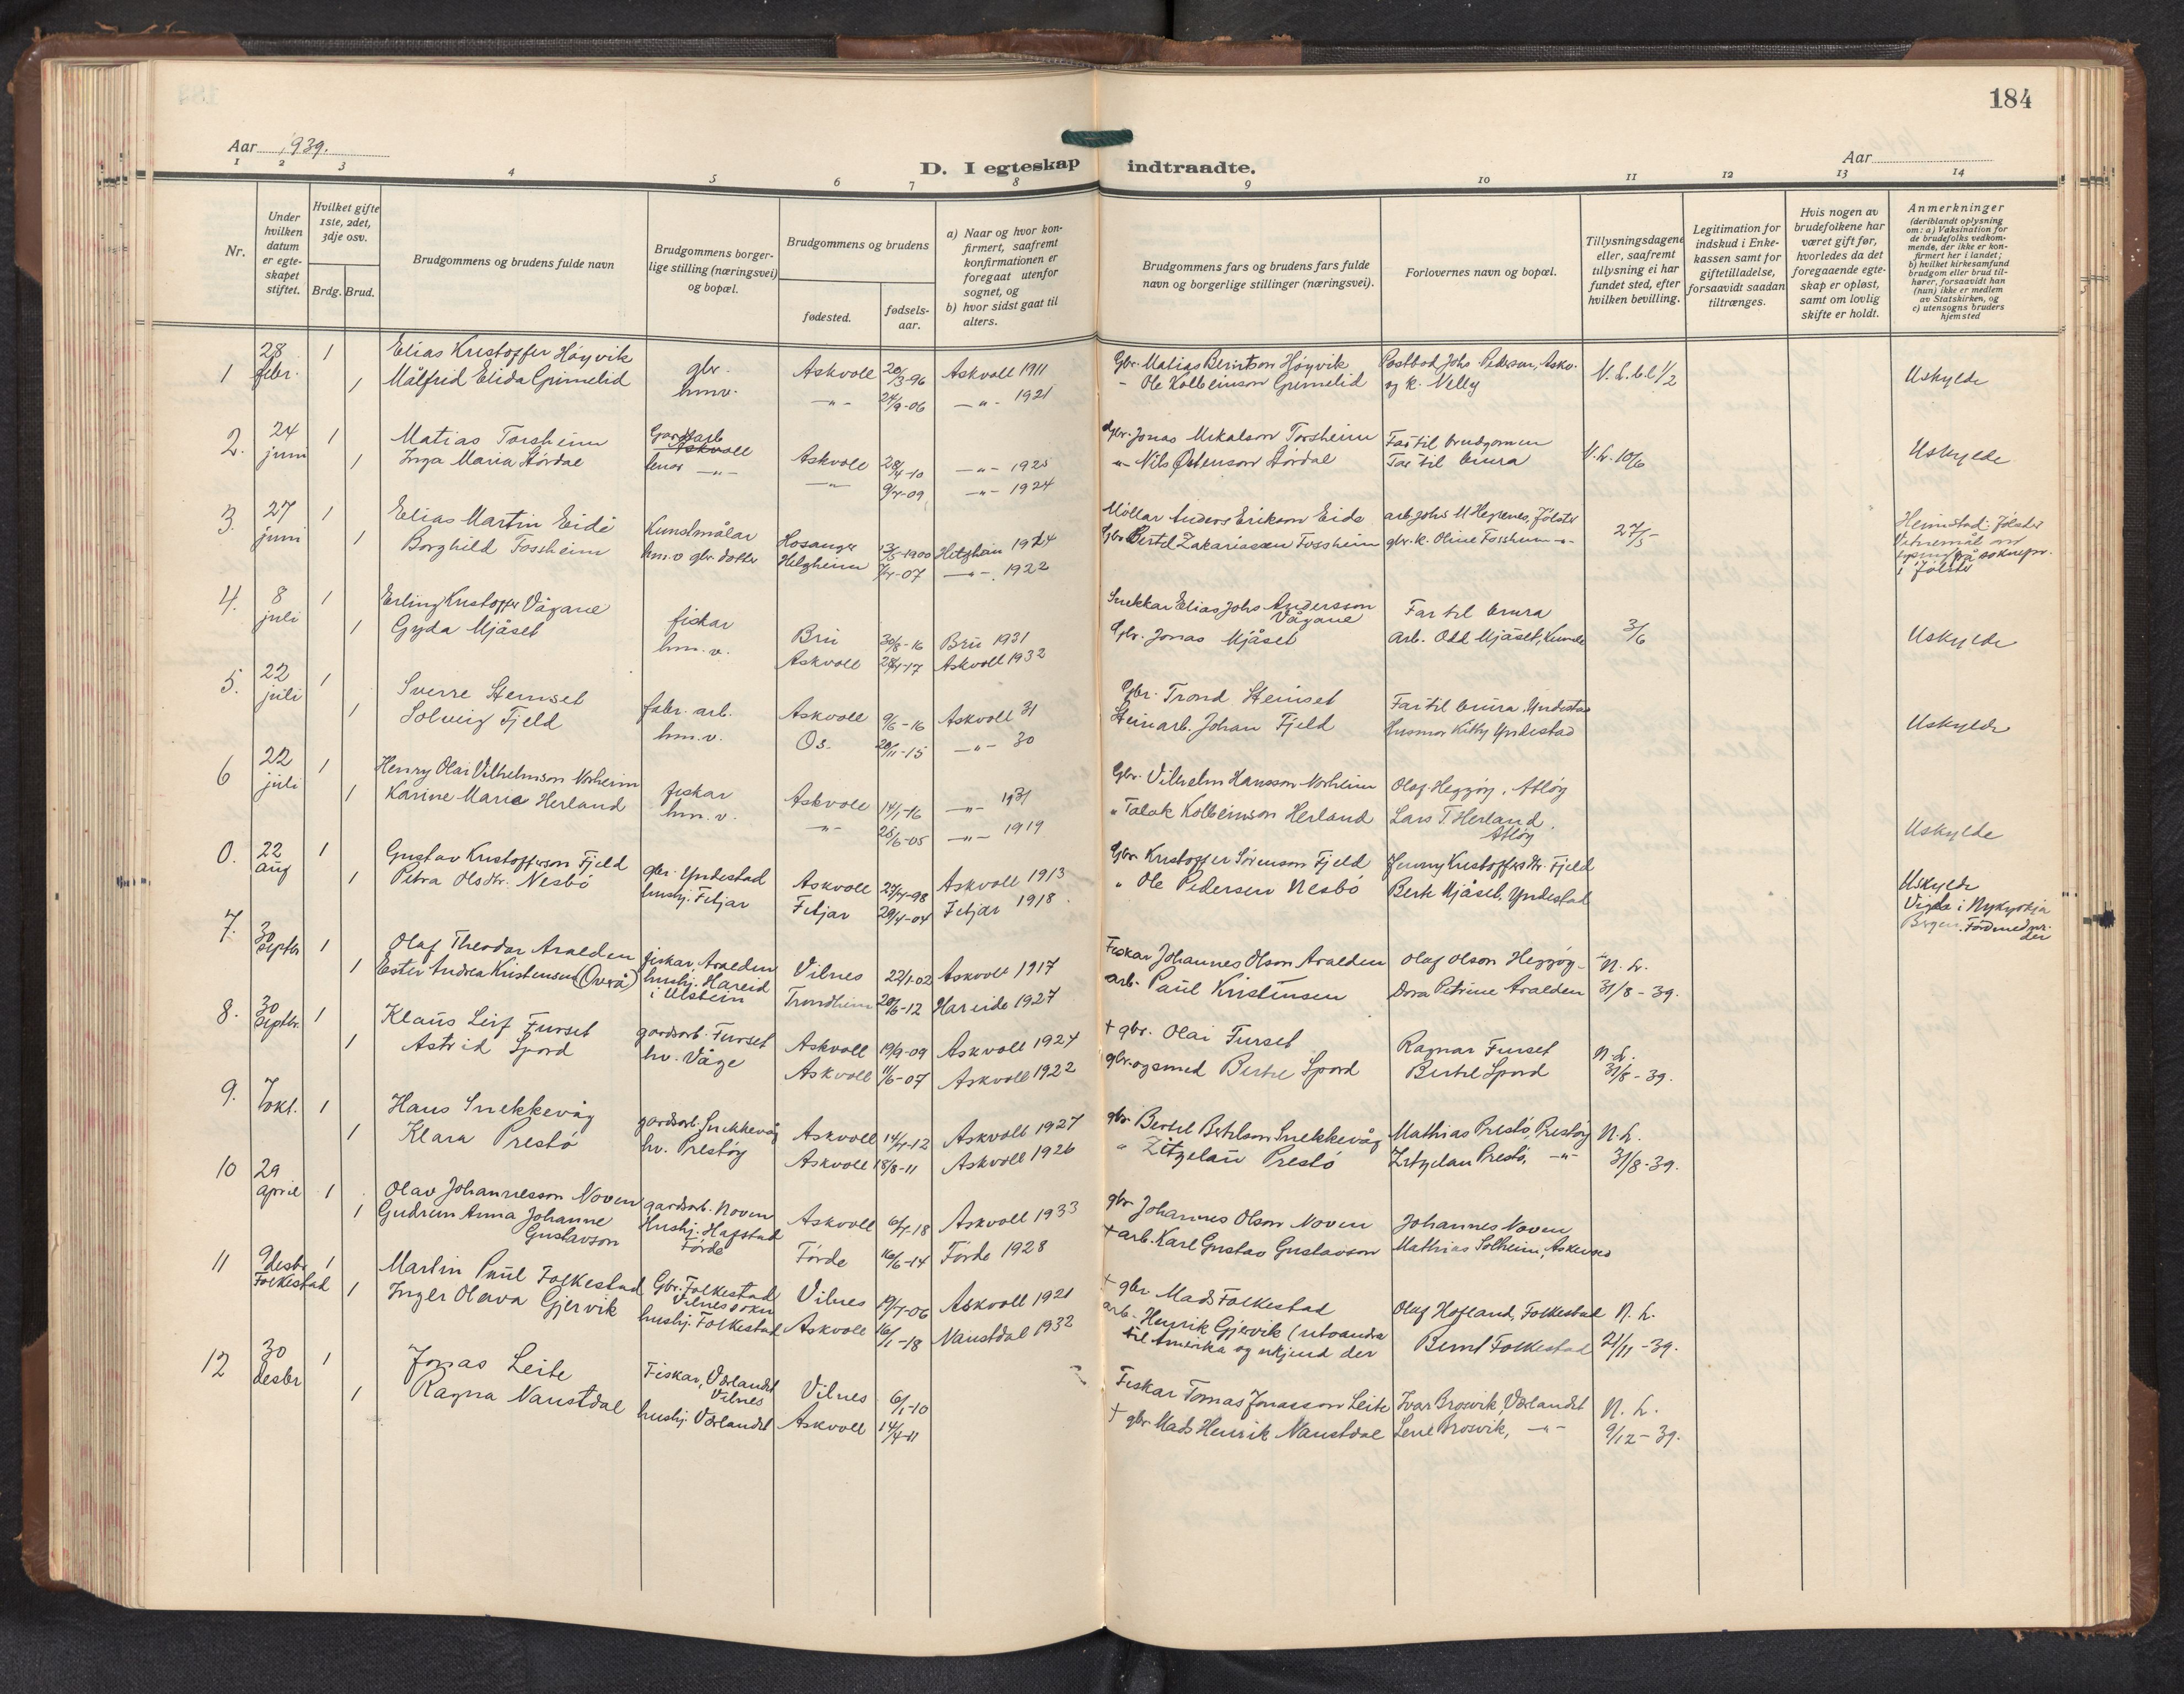 184
Aar 1939.
D. I egteskap indtraadte.
Aar
1 2 3 4 5 6 7 8 9 10 11 12 13 14
Nr.
Under hvilken datum er egte-skapet stiftet.
Hvilket gifte 1ste, 2det, 3dje osv.
Brdg. Brud.
Brudgommens og brudens fulde navn
Brudgommens borger-lige stilling (næringsvei) og bopæl.
Brudgommens og brudens
fødested.
fødsels-aar.
a) Naar og hvor kon-firmert, saafremt konfirmationen er foregaat utenfor sognet, og
b) hvor sidst gaat til alters.
Brudgommens fars og brudens fars fulde navn og borgerlige stillinger (næringsvei).
Forlovernes navn og bopæl.
Tillysningsdagene eller, saafremt tillysning ei har fundet sted, efter hvilken bevilling.
Legitimation for indskud i Enke-kassen samt for giftetilladelse, forsaavidt saadan tiltrænges.
Hvis nogen av brudefolkene har været gift før, hvorledes da det foregaaende egte-skap er opløst, samt om lovlig skifte er holdt.
Anmerkninger (deriblandt oplysning om: a) Vaksination for de brudefolks vedkom-mende, der ikke er kon-firmert her i landet; b) hvilket kirkesamfund brudgom eller brud til-hører, forsaavidt han (hun) ikke er medlem av Statskirken, og c) utensogns bruders hjemsted
1 28 febr. 1 Elias Kristoffer Høyvik gbr. Askvoll 20/3-96 Askvoll 1911 Gbr. Matias Berintson Høyvik Postbod Johs Pedersen, Askv. Uskylde
1 Målfrid Elida Grimelid hmv. -"- 24/9-06 -"- 1921 - Ole Kolbeinson Grimelid og k. Nelly
2. 24 juni 1 Matias Torsheim Gardsarb Askvoll Askvoll 28/4-10 -"- 1925 Gbr. Jonas Mikalson Torsheim Far til brudgomen N.L. 10/6 Uskylde
1 Inga Maria Stördal -"- -"- 9/4-09 -"- 1924 -"- Nils Østenson Stördal Far til brura
3. 27 juni 1 Elias Martin Eide Kunstmålar Hosanger 13/5-1900 1914 Möllar Anders Erikson Eide arb. Johs M Hegrenes, Jölster 27/5 Heimstad: Jölster
1 Borghild Fossheim hm.v gbr. dotter Helgheim 7/4-07 -"- 1922 Gbr Bertel Zakariassen Fossheim gbr. k. Oline Fossheim -"- i Jölster
4. 8 juli 1 Erling Kristoffer Vågane fiskar Bru 30/8-16 Bru 1931 Snekkar Elias Johs Andersson Vågane Far til brura 3/6 Uskylde
1 Gyda Mjåset hm.v. Askvoll 28/4-17 Askvoll 1932 Gbr. Jonas Mjåset arb. Odd Mjåset,
5. 22 juli 1 Sverre Stemset fabr. arb. Askvoll 9/6-16 Askvoll 31 Gbr. Trond Stemset Far til brura, Yndestad Uskylde
1 Solveig Fjeld hm.v. Os. 20/11-15 -"- 30 Steinarb. Johan Fjeld Husmor Kitty Yndestad
6 22 juli 1 Henry Olai Vilhelmson Norheim fiskar Askvoll 14/1-16 -"- 1931 Gbr. Vilhelm Hansson Norheim Olaf Heggøy, Atløy Uskylde
1 Karine Marie Herland hm.v. -"- 25/6-05 -"- 1919 " Talak Kolbeinson Herland Lars T. Herland, Atløy
0. 22 aug 1 Gustav Kristofferson Fjeld gbr. Yndestad Askvoll 27/4-98 Askvoll 1913 Gbr Kristoffer Sørenson Fjeld Jenny Kristoffersdtr. Fjeld Uskylde
1 Petra Olsdtr. Nesbö hushj. Fitjar Fitjar 29/4-04 Fitjar 1918. " Ole Pedersen Nesbö Berte Mjåset, Yndestad Vigde i Nykyrkja Bergen.
7. 30 septbr 1 Olaf Theodor Aralden fiskar, Aralden Vilnes 22/1-02 Askvoll 1917 Fiskar Johannes Olson Aralden Olaf Olson Heggøy N.L.
1 Ester Andrea Kristensen (Overå) hushj. Hareid i Ulstein Trondheim 20/6-12 Hareide 1927 arb. Paul Kristensen Dora Petrine Aralden 31/8-39.
8. 30 septbr. 1 Klaus Leif Furset gardsarb. Furset Askvoll 19/9-09 Askvoll 1924 † gbr. Olai Furset Ragnar Furset N.L.
1 Astrid Spord hv. Våge Askvoll 11/6-07 Askvoll 1922 gbr. og smed Bertil Spord Bertil Spord 31/8-39.
9. 7 okt. 1 Hans Snekkevåg gardsarb. Snekkevåg Askvoll 14/4-12 Askvoll 1927 gbr Bertil Bertilson Snekkevåg Mathias Prestö, Prestöy N.L.
1 Klara Prestö hv. Prestöy Askvoll 18/8-11 Askvoll 1926 " Zitzelau Prestö Zitzelau Prestö, -"- 31/8-39.
10 29 april 1 Olav Johannesson Noven gardsarb. Noven Askvoll 6/4-18 Askvoll 1933 gbr Johannes Olson Noven Johannes Noven
1 Gudrun Anna Johanne Gustavson Hushj. Hafstad Förde Förde 16/6-14 Förde 1928 † arb. Karl Gustav Gustavson Mathias Solheim, Askvoll
11 9 desbr Folkestad 1 Martin Paul Folkestad Gbr. Folkestad Vilnes sokn Vilnes 19/7-06 Askvoll 1921 † gbr Mads Folkestad Olaf Hofland, Folkestad N.L.
1 Inger Olava Gjervik hushj. Folkestad Askvoll 16/1-18 Naustdal 1932 arb. Henrik Gjervik (utvandra til Amerika og ukjend der Bernt Folkestad 21/11-39.
12 30 desbr 1 Jonas Leite Fiskar, Værlandet Vilnes Vilnes 6/1-10 Fiskar Tomas Jonasson Leite Ivar Brosvik, Værlandet N.L.
1 Ragna Naustdal hushj. Værlandet Askvoll 14/4-11 † gbr. Mads Henrik Naustdal Lene Brosvik, -"- 9/12-39.